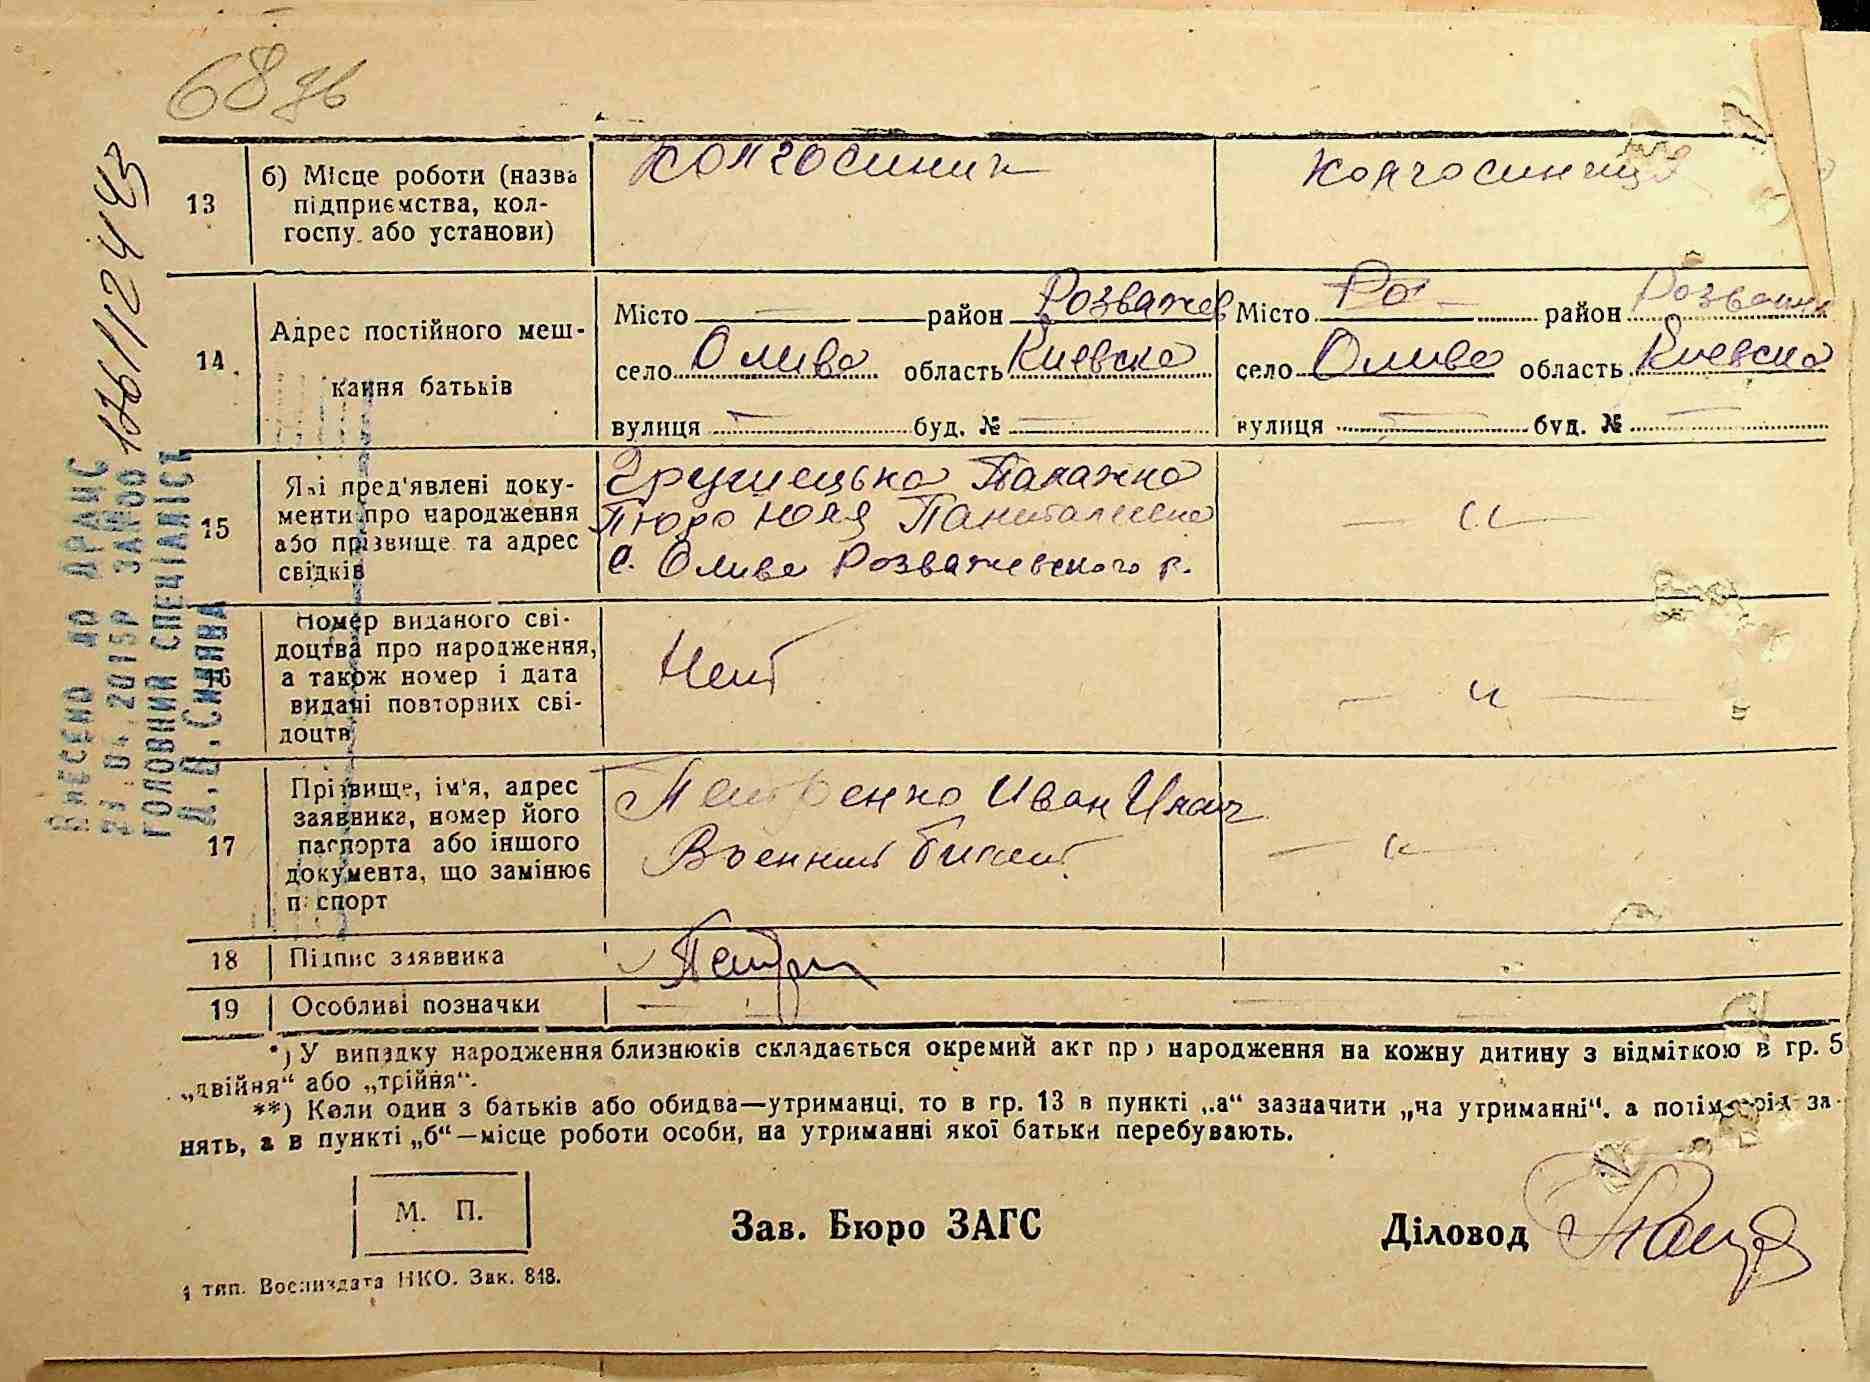 68 зв
13 б) Місце роботи (назва підприємства, колгоспу або установи) колгоспник колгоспниця
14 Адрес постійного мешкання батьків
Місто — район Розважев Місто Ро — район Розваж
село Олива область Киевска село Олива область Киевска
вулиця — буд. № — вулиця — буд. № —
15 Які пред'явлені документи про народження або прізвище та адрес свідків
Палажка
Юля
с. Олива Розважевского р.
— " —
16 Номер виданого свідоцтва про народження, а також номер і дата видачі повторних свідоцтв
Нет
— " —
17 Прізвище, ім'я, адрес заявника, номер його паспорта або іншого документа, що замінює паспорт
Петренко Иван Ильич
Военный билет
— " —
18 Підпис заявника
19 Особливі позначки — —
*) У випадку народження близнюків складається окремий акт про народження на кожну дитину з відміткою в гр. 5
„двійня“ або „трійня“.
**) Коли один з батьків або обидва—утриманці, то в гр. 13 в пункті „а“ зазначити „на утриманні“, а потім рід за-
нять, а в пункті „б“—місце роботи особи, на утриманні якої батьки перебувають.
М. П.
Зав. Бюро ЗАГС
Діловод
1 тип. Воениздата НКО. Зак. 818.
Внесено до ДРАЦС
.04.2015р за №00 136112443
Головний спеціаліст